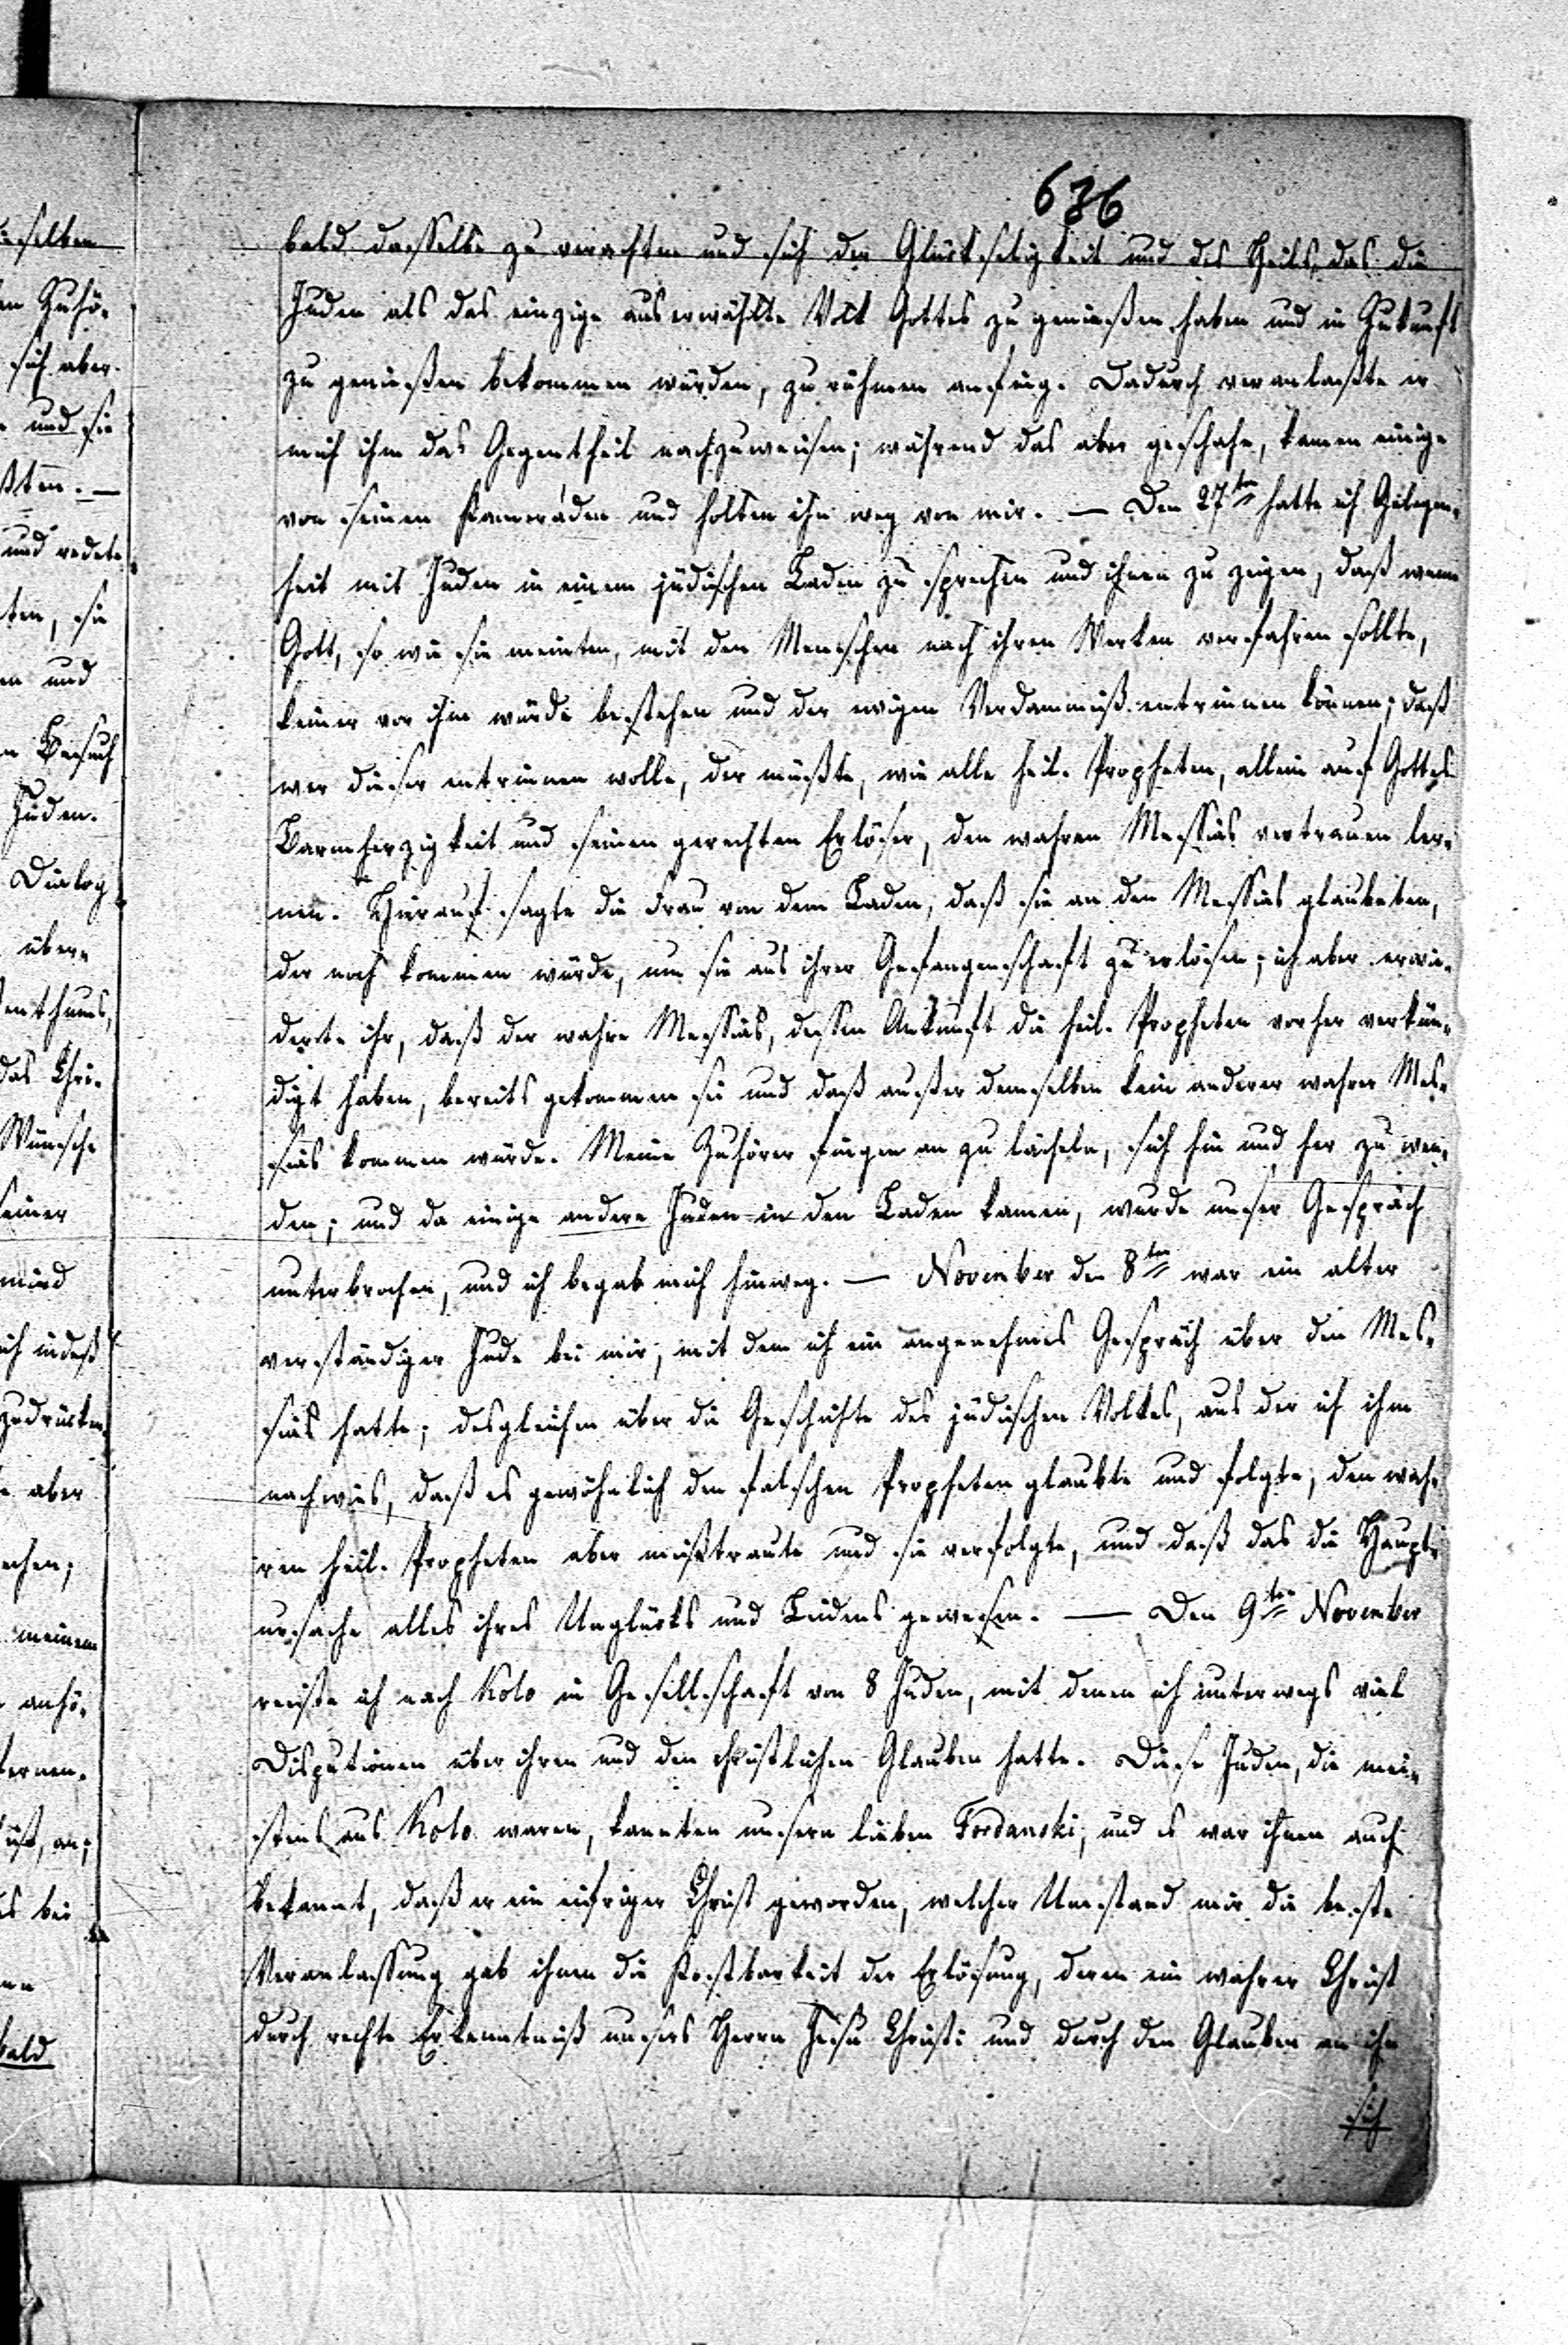 636
bald dasselbe zu verachten und sich der Glückseligkeit und des Heils, das die
Juden als das einzige auserwählte Volk Gottes zu genießen haben und in Zukunft
zu genießen bekommen würden, zu rühmen anfing. Dadurch veranlaßte er
mich ihm das Gegentheil nachzuweisen; während das aber geschahe, kamen einige
von seinen Kameraden und holten ihn weg von mir. — Den 27ten hatte ich Gelegen-
heit mit Juden in einem jüdischen Laden zu sprechen und ihnen zu zeigen, daß wenn
Gott, so wie sie meinten, mit den Menschen nach ihren Werken verfahren sollte,
keiner vor ihm würde bestehen und der ewigen Verdammniß entrinnen können; daß
wer dieser entrinnen wolle, der müßte, wie alle heil. Propheten, allein auf Gottes
Barmherzigkeit und seinen gerechten Erlöser, den wahren Messias vertrauen ler-
nen. Hierauf sagte die Frau von dem Laden, daß sie an den Messias glaubeten,
der noch kommen würde, um sie aus ihrer Gefangenschaft zu erlösen; ich aber erwie-
derte ihr, daß der wahre Messias, dessen Ankunft die heil. Propheten vorher verkün-
digt haben, bereits gekommen sei und daß außer demselben kein anderer wahrer Mes-
sias kommen würde. Meine Zuhörer fingen an zu lächeln, sich hin und her zu wen-
den; und da einige andere Juden in den Laden kamen, wurde unser Gespräch
unterbrochen, und ich begab mich hinweg. — November den 8ten war ein alter
verständiger Jude bei mir, mit dem ich ein angenehmes Gespräch über den Mes-
sias hatte; desgleichen über die Geschichte des jüdischen Volkes, aus der ich ihm
nachwies, daß es gewöhnlich den falschen Propheten glaubte und folgte, den wah-
ren heil. Propheten aber mißtraute und sie verfolgte, und daß das die Haupt-
ursache alles ihres Unglücks und Leidens gewesen. — Den 9ten November
reiste ich nach Kolo in Gesellschaft von 8 Juden, mit denen ich unterwegs viel
Disputionen über ihren und den christlichen Glauben hatte. Diese Juden, die mei-
stens aus Kolo waren, kannten unsern lieben Fordanski, und es war ihnen auch
bekannt, daß er ein eifriger Christ geworden, welcher Umstand mir die beste
Veranlassung gab ihnen die Kostbarkeit der Erlösung, deren ein wahrer Christ
durch rechte Erkenntniß unsers Herrn Jesu Christi und durch den Glauben an ihn
sich